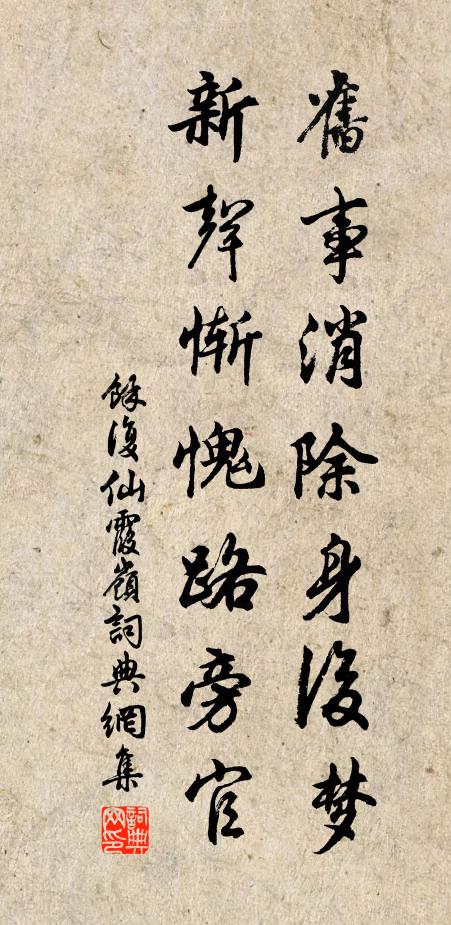 舊事消除身後梦
新聲慚愧路旁官
餘復仙霞嶺詞典網集
詞典网印